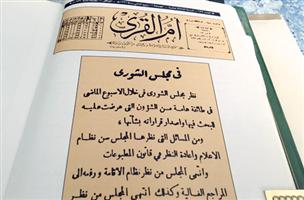 أم القرى
في مجلس الشورى
نظر مجلس الشورى في خلال الاسبوع الماضي
في طائفة هامة من الشؤون التي عرضت عليه
للبحث فيها واصدار قراراته بشأنها ،
ومن المسائل التي نظرها المجلس من نظام
الاعلام واعادة النظر في قانون المطبوعات
وانهى المجلس من نظام الاقامة ورفعه الى
المراجع العالية وكذلك انتهى المجلس من نظر